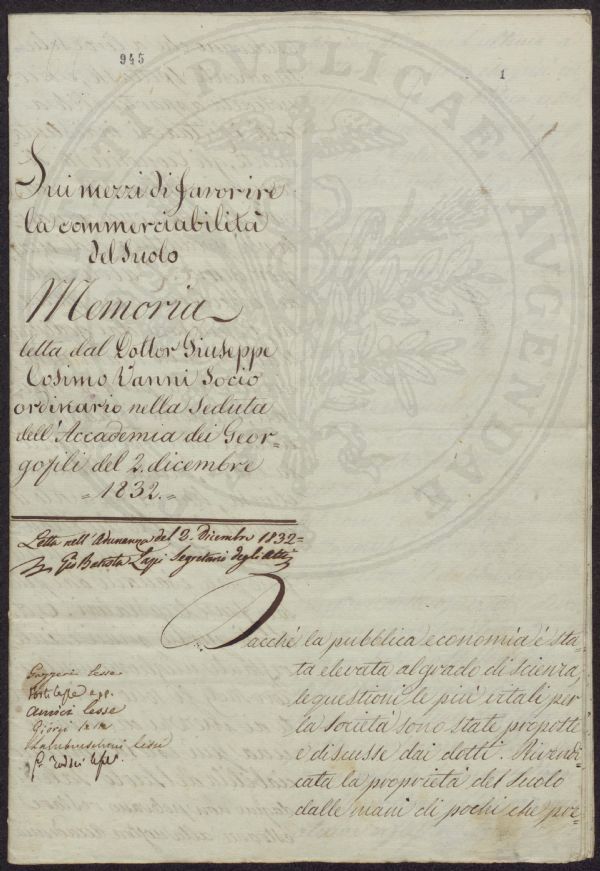 945
1
Sui mezzi di favorire
la commerciabilità
del Suolo
Memoria
letta dal Dottor Giuseppe
Cosimo Vanni Socio
ordinario nella Seduta
dell'Accademia dei Geor=
gofili del 2. dicembre
= 1832. =
Letta nell'Adunanza del 2. Dicembre 1832=
Gio Batista Lapi Segretario degli Atti
Dacché la pubblica economia è sta=
ta elevata al grado di scienza,
le questioni le più vitali per
la società sono state proposte
e discusse dai dotti. Rivendi=
cata la proprietà del Suolo
dalle mani di pochi che pre=
Gazzeri lesse
lesse
Giorgi
Lambruschini lesse
PUBLICAE
AUGENDAE